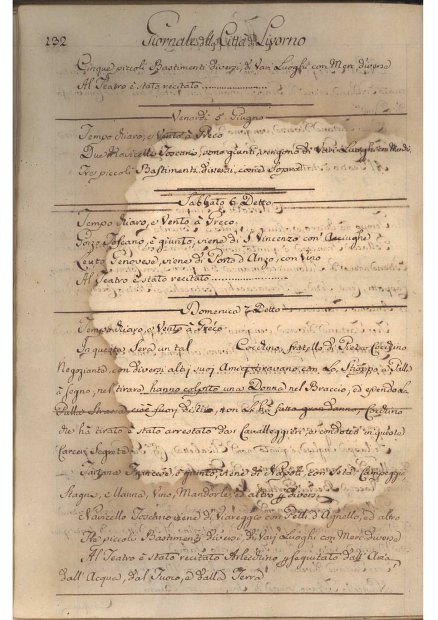 232 Giornale della Città di Livorno
Cinque piccoli Bastimenti diversi, di Vari Luoghi con Merc diverse
Al Teatro è stato recitato
Venerdi 5 Giugno
Tempo chiaro, e Vento à Greco
Due Navicelli Toscani, sono giunti, vengono di Luoghi con Merci
Tre piccoli Bastimenti diversi, come Sopra
Sabbato 6 Detto
Tempo chiaro, e Vento à Greco
Gozzo Toscano, è giunto, viene di S. Vincenzo con Acciughe
Leuto Genovese, viene di Porto d'Anzo, con Vino
Al Teatro è stato recitato
Domenica 7 Detto
Tempo chiaro, e Vento à Greco
In questa Sera un tal Coccolino, fratello di Pietro Coccolino
Negoziante, con diversi altri suoi Amici con Lo Schioppo à Palla
à segno, nel tirare hanno colpito una Donna nel Braccio, ed essendo La
Palla cioè fuori di tiro, non Le hà fatto gran danno, Coccolino
che hà tirato è stato arrestato da Cavalleggieri e condotto in queste
Carceri Segrete
Tartana Francese è giunta, viene di Napoli, con Seta, Campeggio
Stagno, e Manna, Vino, Mandorle, ed altro diversi
Navicello Toschino viene di Viareggio con Pelli d'Agnello, ed altro
Tre piccoli Bastimenti diversi di Vari Luoghi con Merc diverse
Al Teatro è stato recitato Arlecchino perseguitato dall'Aria,
dall'Acqua, dal Fuoco, e dalla Terra